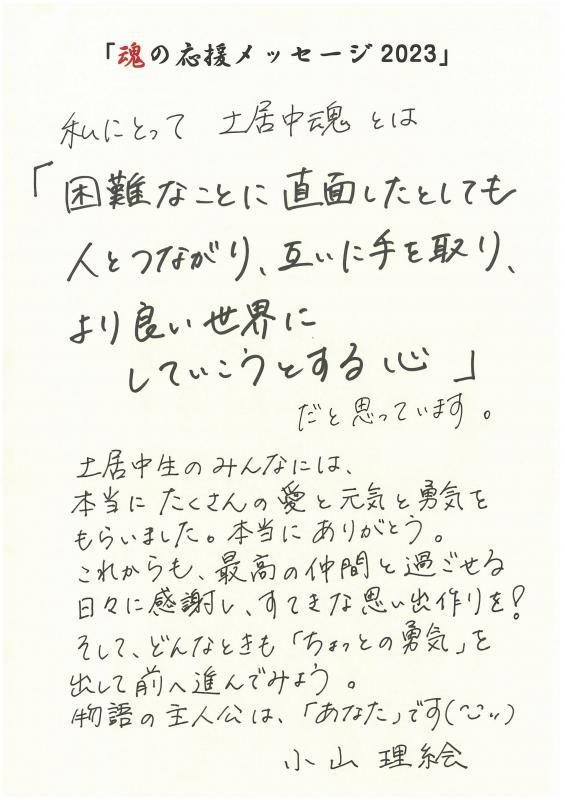 「魂の応援メッセージ2023」
私にとって 土居中魂 とは
「困難なことに直面したとしても
人とつながり、互いに手を取り、
より良い世界に
していこうとする心」
だと思っています。
土居中生のみんなには、
本当にたくさんの愛と元気と勇気を
もらいました。本当にありがとう。
これからも、最高の仲間と過ごせる
日々に感謝し、すてきな思い出作りを!
そして、どんなときも「ちょっとの勇気」を
出して前へ進んでみよう。
物語の主人公は、「あなた」です(^-^)
小山 理絵